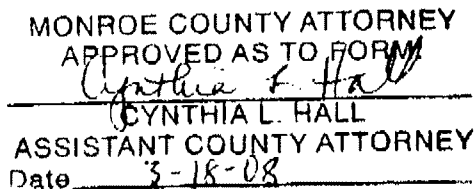 MONROE COUNTY ATTORNEY
APPROVED AS TO FORM:
Cynthia L. Hall
CYNTHIA L. HALL
ASSISTANT COUNTY ATTORNEY
Date 3-18-08